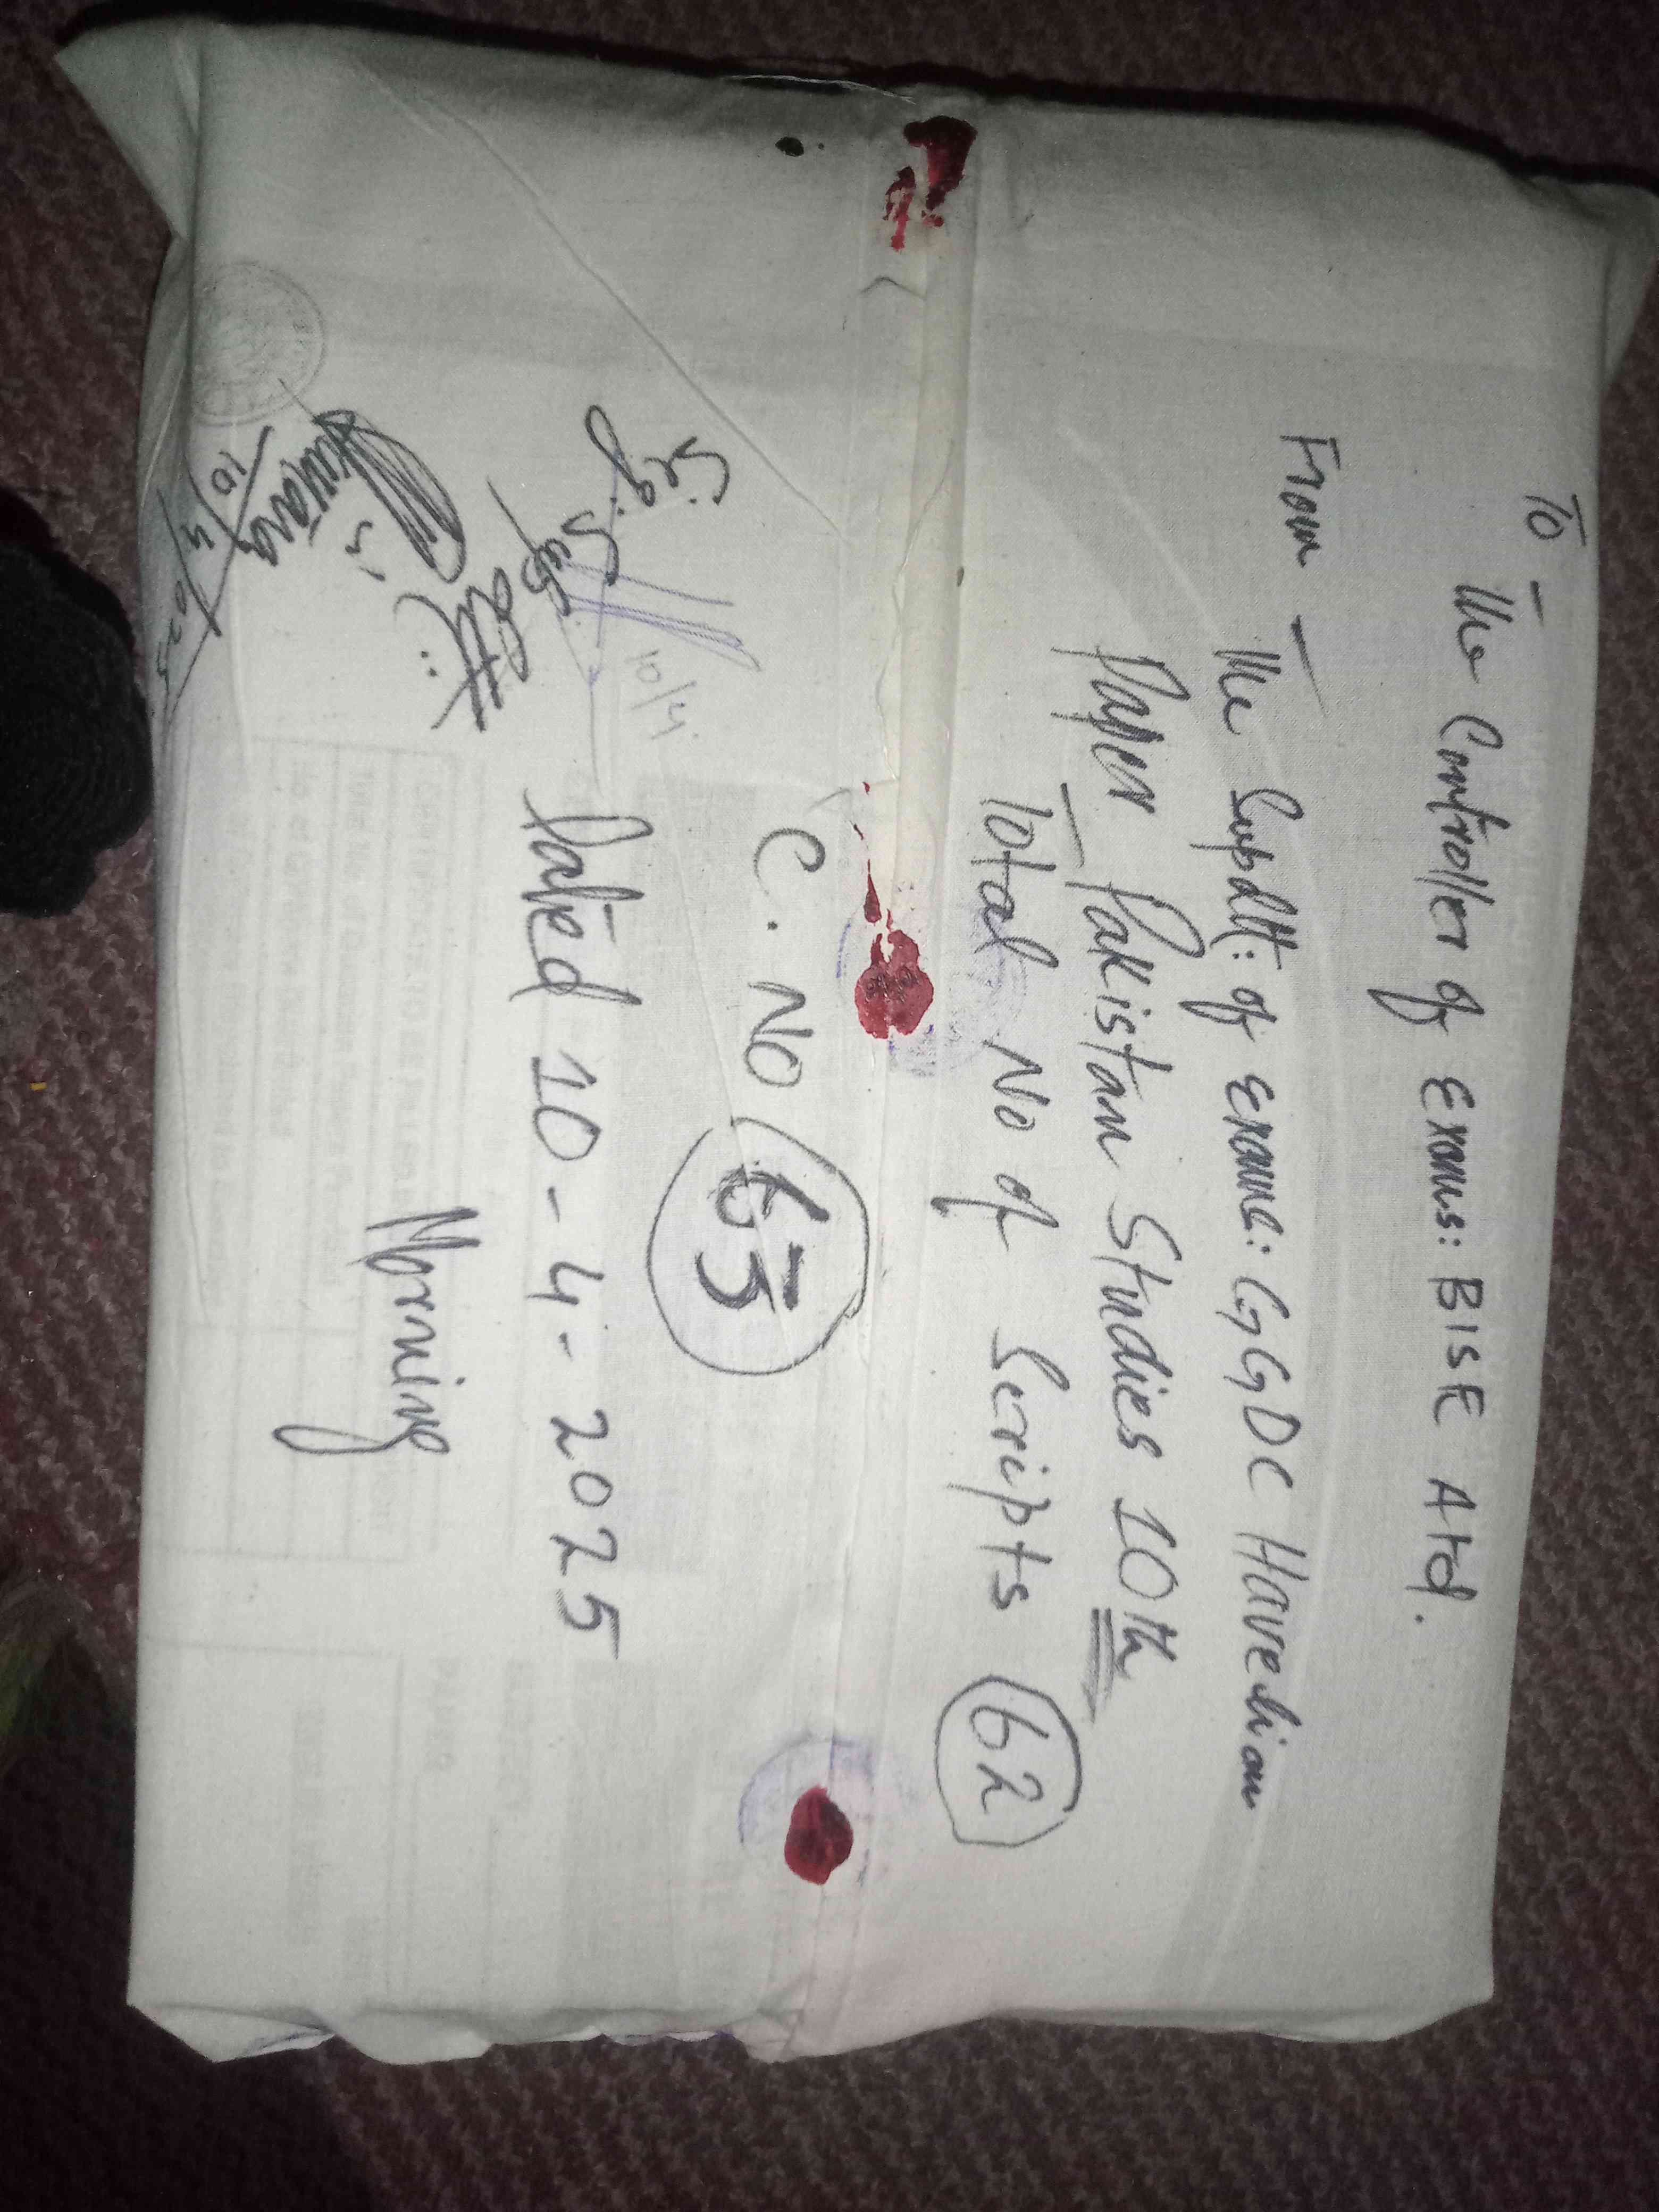 To
The Controller of Exams: BISE Atd.
From
The Supdtt: of Exams: GGDC Havelian
Paper Pakistan Studies 10th
Total No of Scripts 62
C. No 63
Dated 10-4-2025
Morning
Sig: Sup
10/4